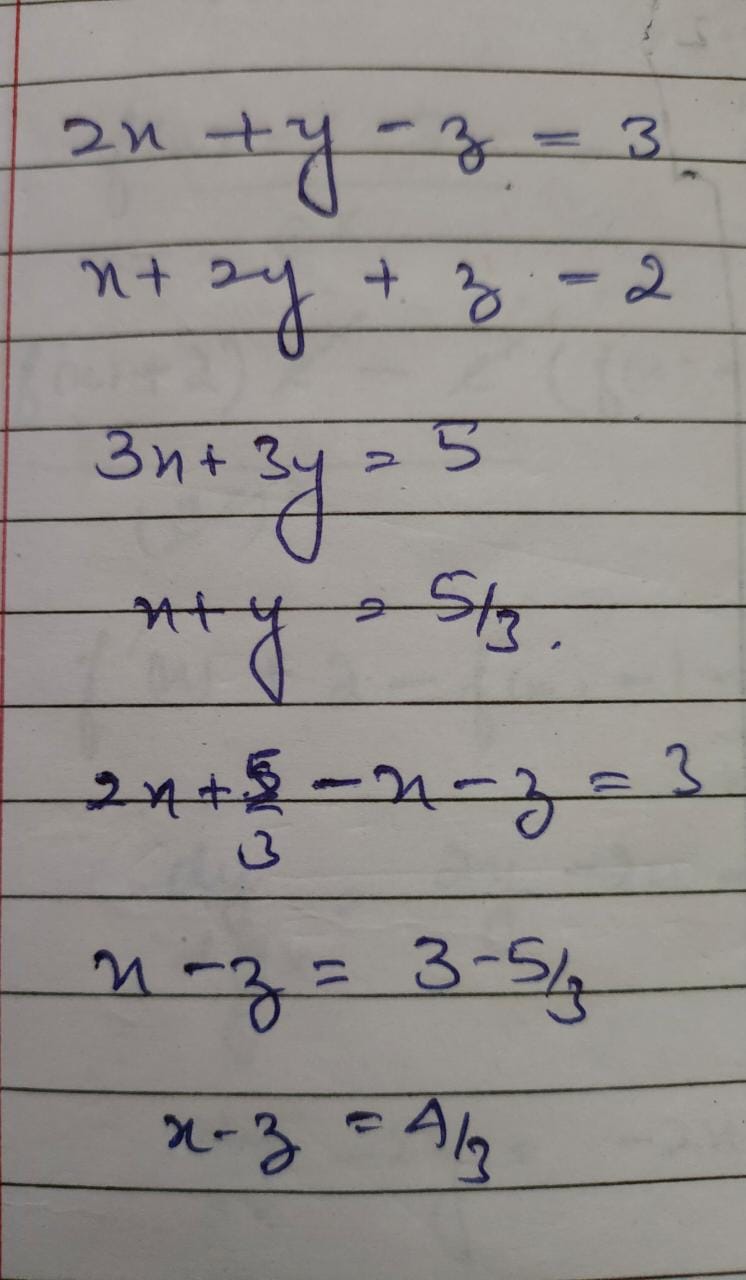 2x + y - z = 3
x + 2y + z = 2
3x + 3y = 5
x + y = 5/3.
2x + 5/3 - x - z = 3
x - z = 3 - 5/3
x - z = 4/3